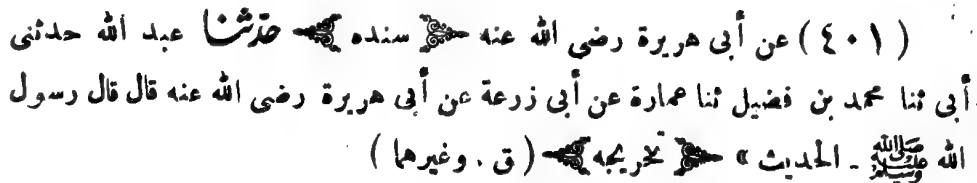 (٤٠١) عن أبى هريرة رضى الله عنه ﴿ سنده ﴾ حدثنا عبد الله حدثنى
أبى ثنا محمد بن فضيل ثنا عمارة عن أبى زرعة عن أبى هريرة رضى الله عنه قال قال رسول
الله ﷺ ـ الحديث » ﴿ تخريجه ﴾ ( ق . وغيرهما )